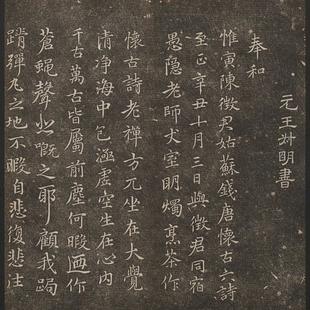 元王叔明書
奉和
惟寅陳徵君姑蘇錢唐懷古六詩
至正辛丑十月三日與徵君同宿
愚隐老師丈室明燭烹茶作
懷古詩老禪方兀坐在大覺
清淨海中包涵虛空生在心內
千古萬古皆屬前塵何暇迺作
蒼蝇聲悲慨之耶顧我跼
蹐彈丸之地不暇自悲復悲往